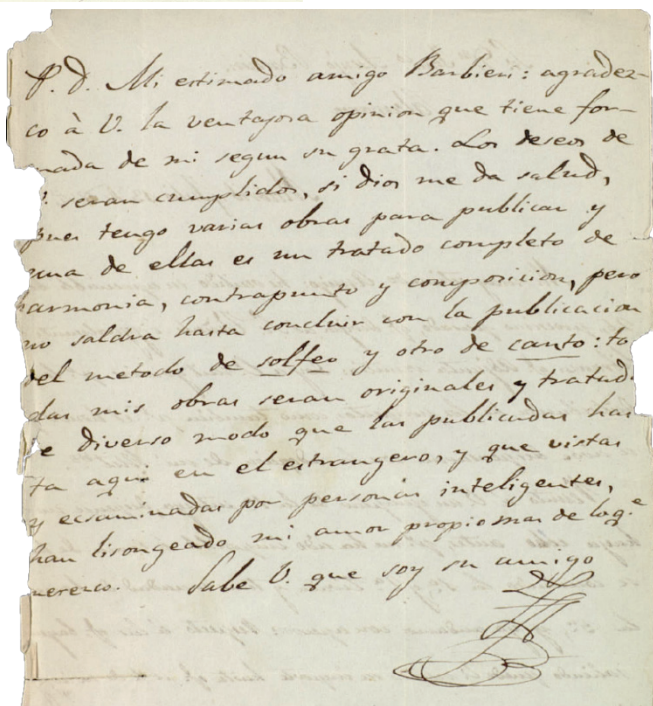 P. D. Mi estimado amigo Barbieri: agradez-
co à V. la ventajosa opinion que tiene for-
mada de mi segun su grata. Los deseos de
V. seran cumplidos, si dios me da salud,
pues tengo varias obras para publicar y
una de ellas es un tratado completo de
harmonia, contrapunto y composicion, pero
no saldra hasta concluir con la publicacion
del metodo de solfeo y otro de canto: to
das mis obras seran originales y tratad
de diverso modo que las publicadas has
ta aqui en el estrangero, y que vistas
y ecsaminadas por personas inteligentes,
han lisongeado mi amor propio mas de lo q.e
merezco. Sabe V. que soy su amigo